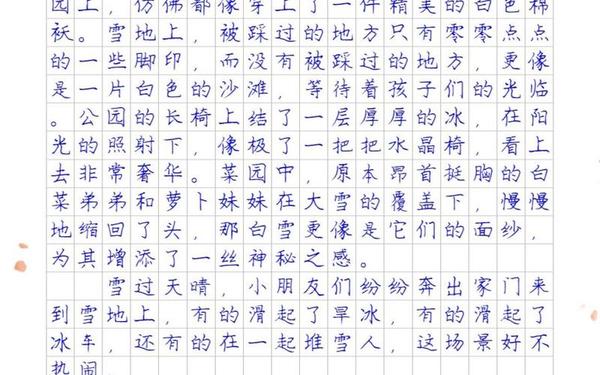 园上，仿佛都像穿上了一件精美的白色棉
袄。雪地上，被踩过的地方只有零零点点
的一些脚印，而没有被踩过的地方，更像
是一片白色的沙滩，等待着孩子们的光临
。公园的长椅上结了一层厚厚的冰，在阳
光的照射下，像极了一把把水晶椅，看上
去非常奢华。菜园中，原本昂首挺胸的白
菜弟弟和萝卜妹妹在大雪的覆盖下，慢慢
地缩回了头，那白雪更像是它们的面纱，
为其增添了一丝神秘之感。
雪过天晴，小朋友们纷纷奔出家门来
到雪地上，有的滑起了旱冰，有的滑起了
冰车，还有的在一起堆雪人，这场景好不
热闹。